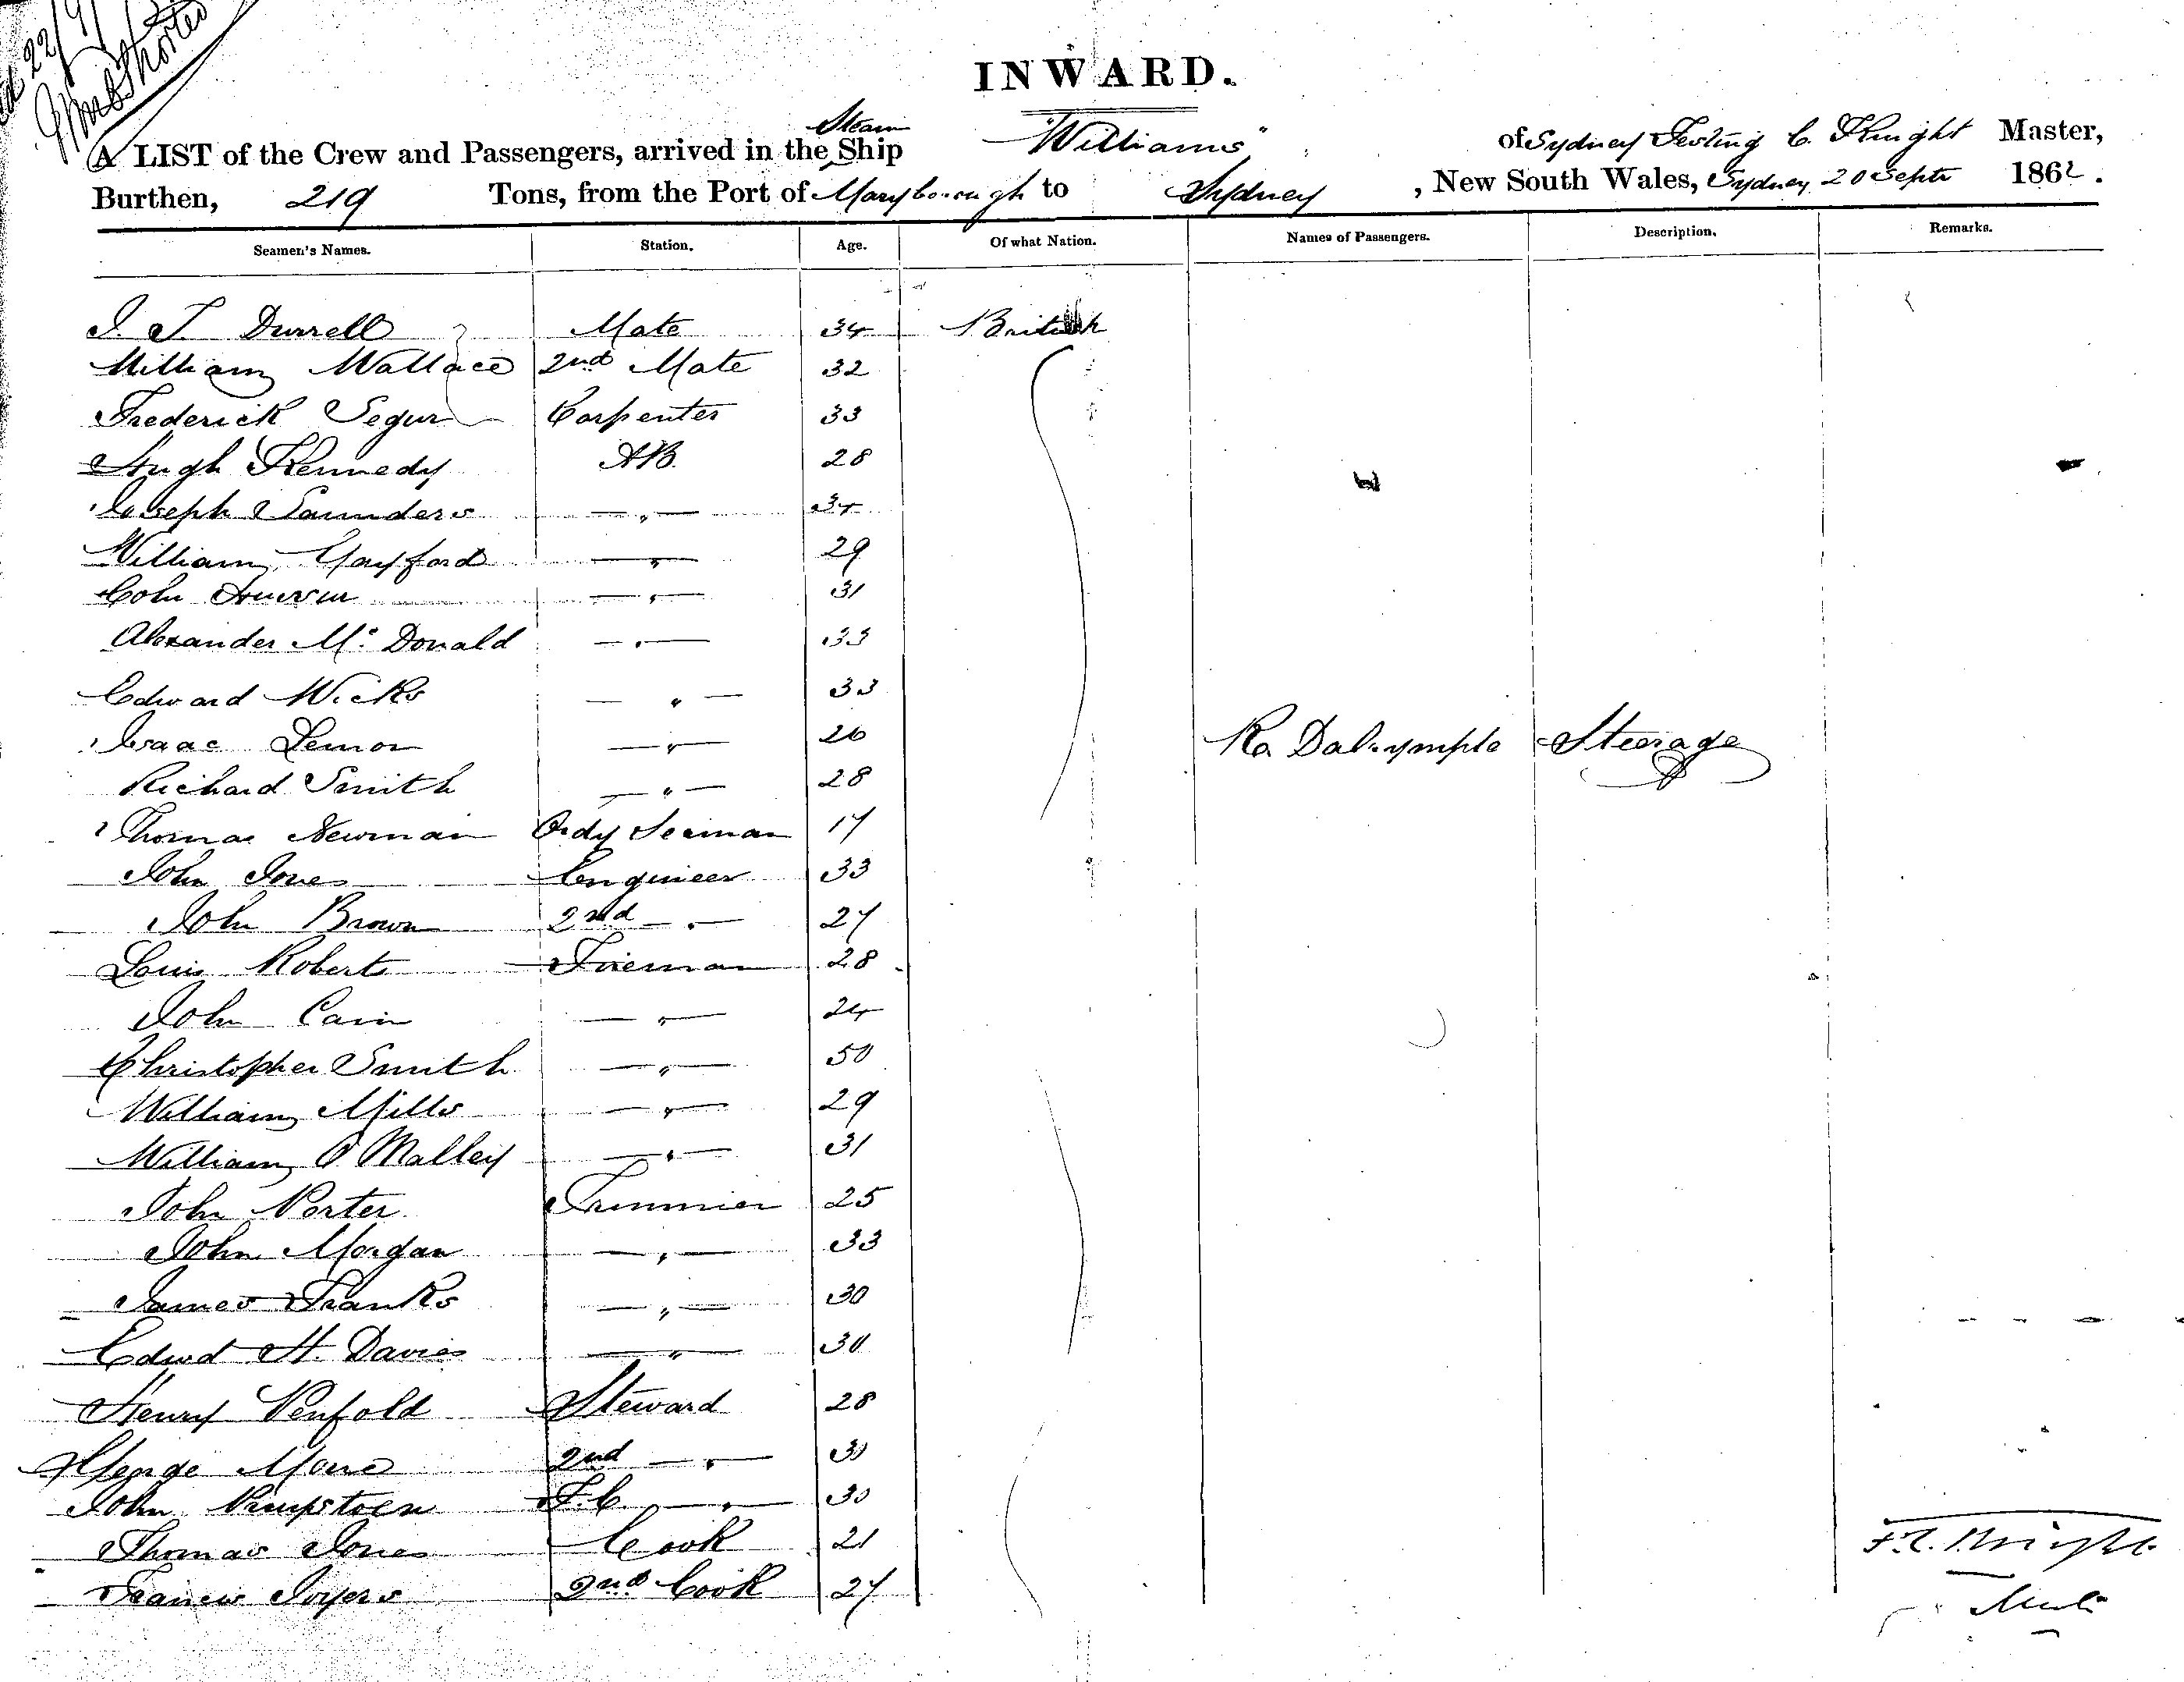 22/9
INWARD.
A LIST of the Crew and Passengers, arrived in the Steam Ship "Williams" of Sydney C. Knight Master,
Burthen, 219 Tons, from the Port of Maryborough to Sydney, New South Wales, Sydney 20 Septr 1862.
Seamen's Names. Station. Age. Of what Nation. Names of Passengers. Description. Remarks.
J. T. Durrell Mate 34 British
William Wallace 2nd Mate 32
Frederick Segur Carpenter 33
Hugh Kennedy AB. 28
Joseph Saunders — " — 34
William Gayford — " — 29
31
Alexander Mc Donald — " — 33
Edward Wicks — " — 33
Isaac Lemon — " — 26 Ro Dalrymple Steerage
Richard Smith — " — 28
Thomas Newman Ordy Seaman 17
John Jones Engineer 33
John Brown 2nd — " — 27
Louis Roberts Fireman 28
John Cain — " — 24
Christopher Smith — " — 50
William Mills — " — 29
William O Malley — " — 31
John Porter Trimmer 25
John Morgan — " — 33
James Franks — " — 30
Edwd H. Davies — " — 30
Henry Penfold Steward 28
George 2nd — " — 30
John — " — 30
Thomas Jones Cook 21
2nd Cook 27
F. C. Knight